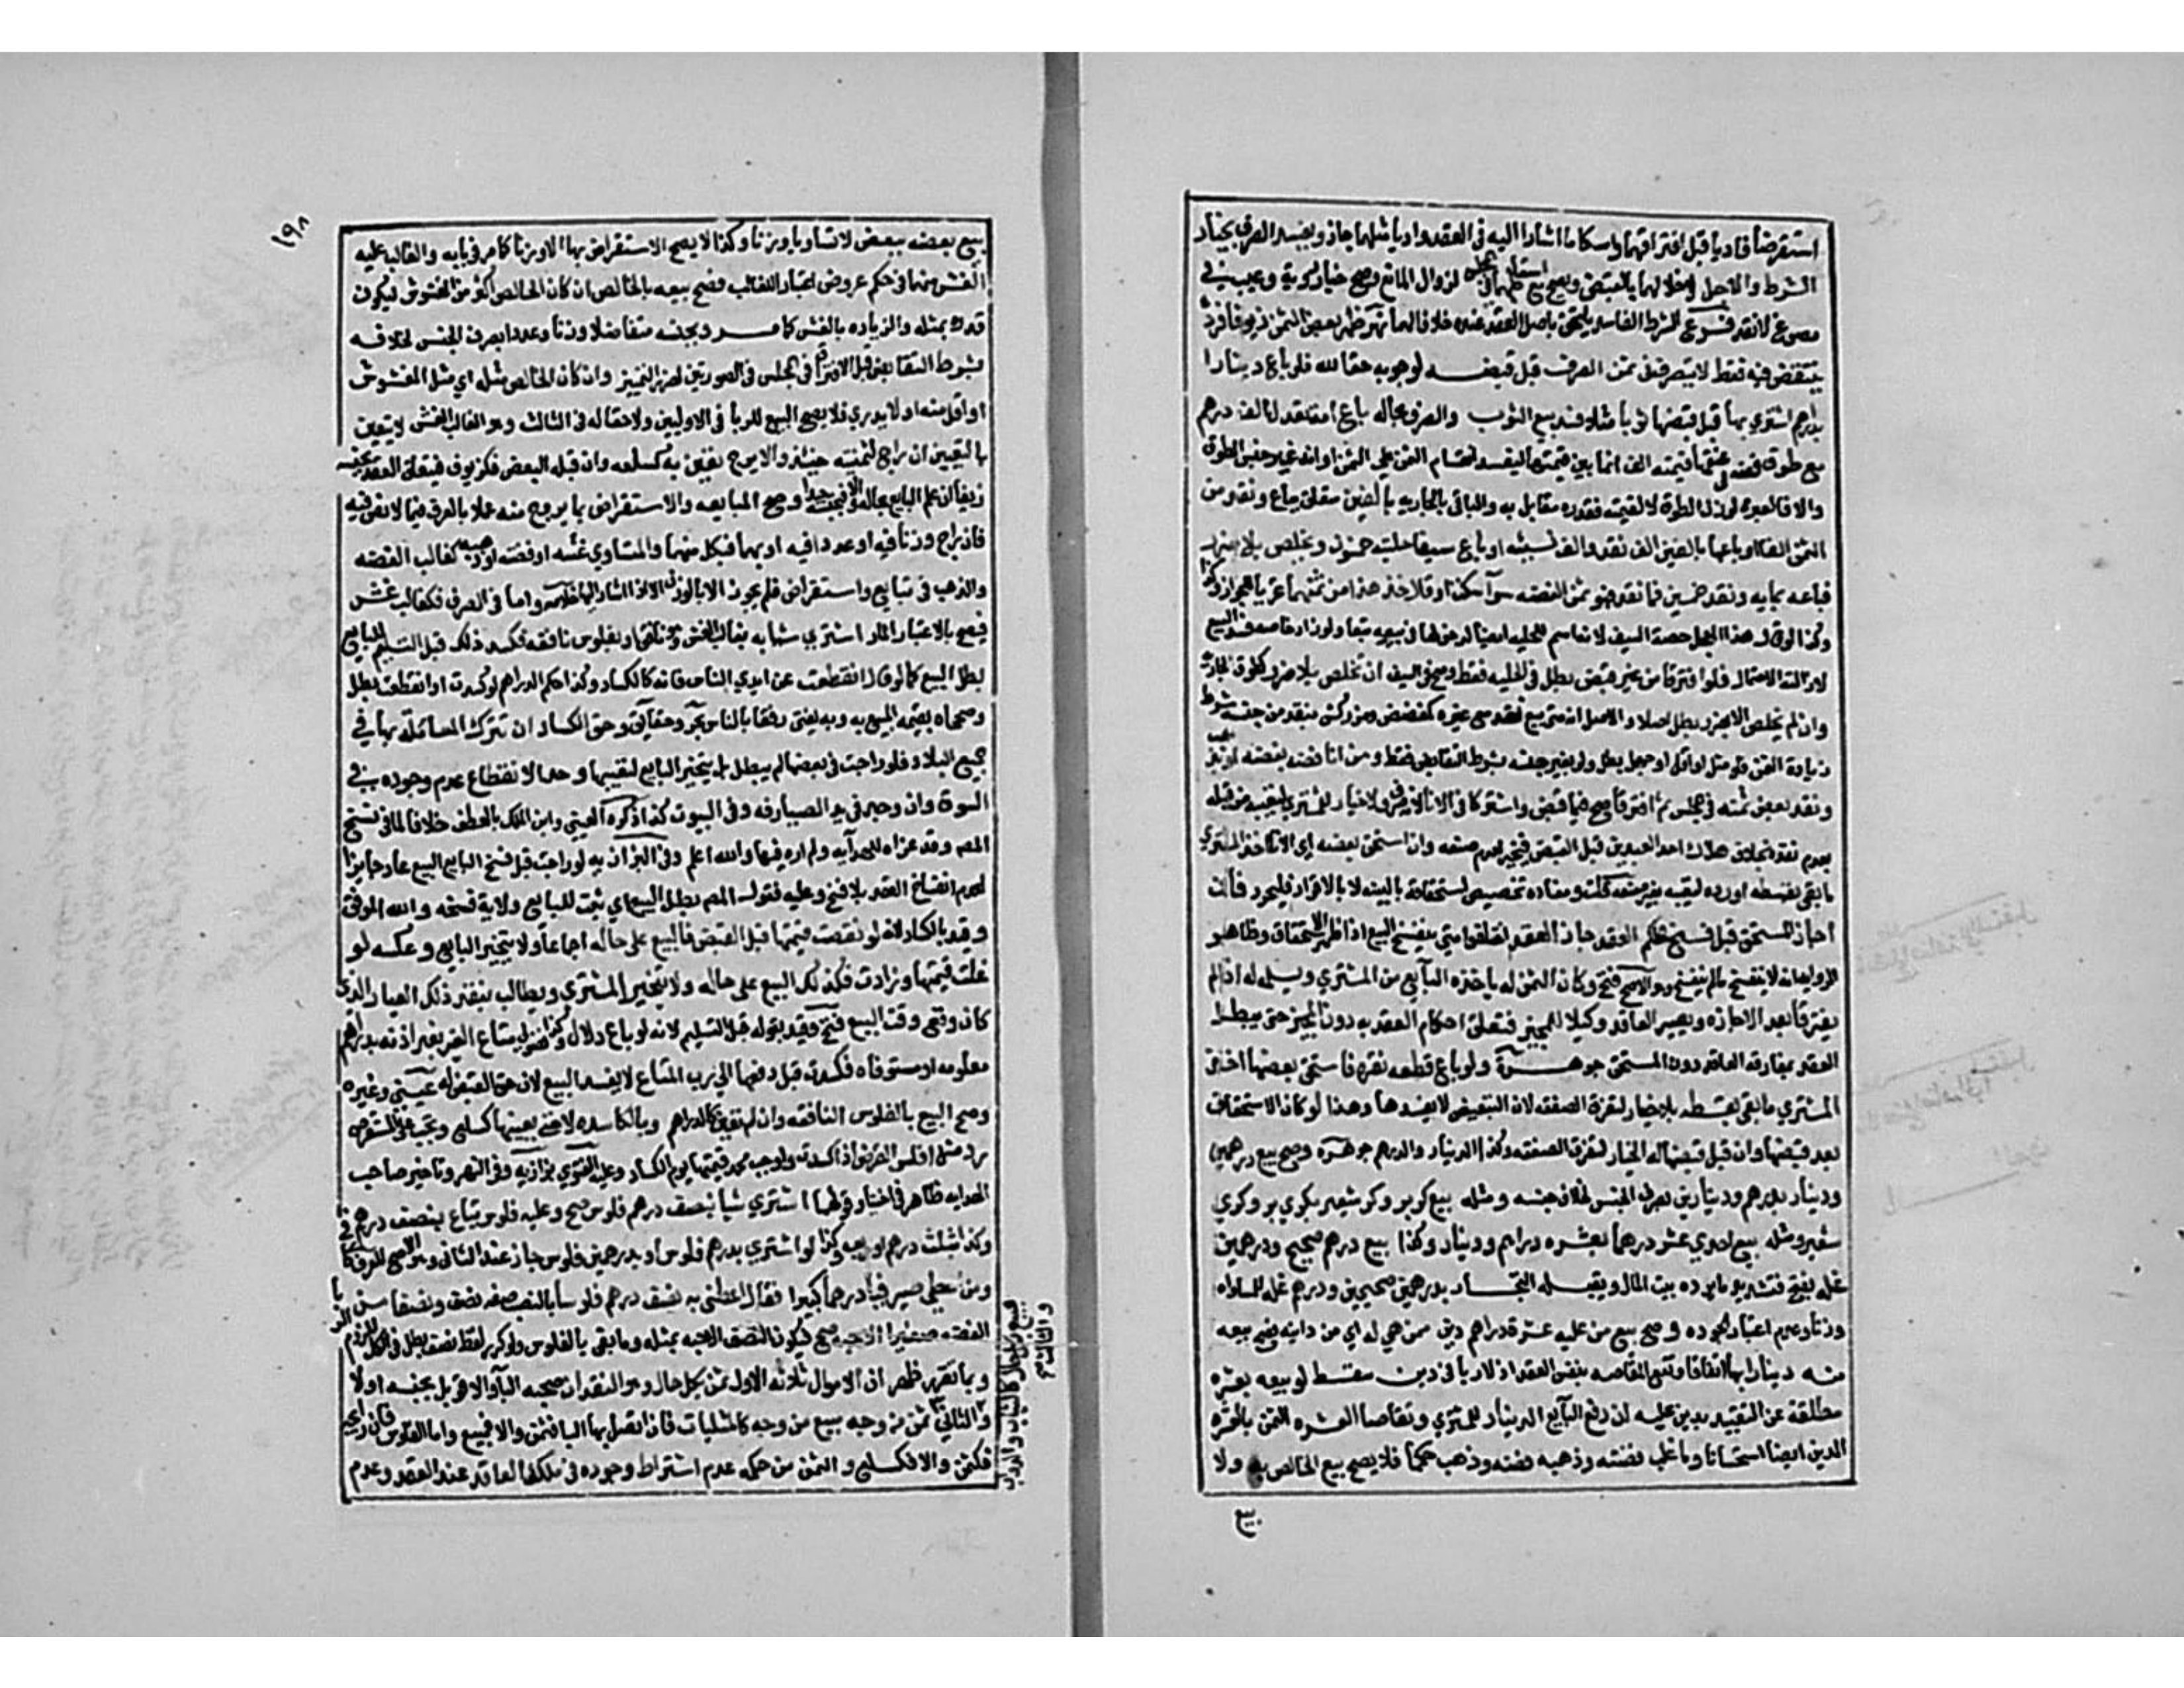 استقرضا فاديا قبل افتراقهما وامسكا ما اشارا اليه في العقد واديا مثلهما جاز ويفسد الصرف بخيار
الشرط والاجل لاخلالهما بالقبض ويصح مع اسقاطهما في المجلس لزوال المانع وصح خيار روية وعيب في
مصوغ لا نقد فروع الشرط الفاسد يلتحق باصل العقد عنده خلافا لهما نهر ظهر بعض الثمن زيوفا فرد
ينتقض فيه فقط لا يتصرف في ثمن الصرف قبل قبضه لوجوبه حقا لله فلو باع دينارا
بدراهم اشترى بها قبل قبضها ثوبا مثلا فسد بيع الثوب والصرف بحاله باع امة تعدل الف درهم
مع طوق فضة في عنقها قيمته الف انما بين قيمتهما ليفيد انقسام الثمن على المثمن او انه غير جنس الطوق
والا فالعبرة لوزن الطوق لا لقيمته فقدره مقابل به والباقي بالجارية بالفين متعلق بباع ونقد من
الثمن الفا او باعها بالفين الف نقد والف نسيئة او باع سيفا حليته خمسون ويخلص بلا ضرر
فباعه بمايه ونقد خمسين فما نقد فهو ثمن الفضه سوآ سكت او قال خذ هذا من ثمنهما تحريا للجواز وكذا
وكذا لو قال هذا المعجل حصة السيف لانه اسم للحليه ايضا لدخولها في بيعه تبعا ولو زاد خاصه فسد البيع
لازالة الاحتمال فلو افترقا من غير قبض بطل في الحليه فقط وصح في السيف ان تخلص بلا ضرر كطوق الجاريه
وان لم يخلص الا بضرر بطل اصلا والاصل انه متى بيع نقد مع غيره كمفضض ومزركش بنقد من جنسه شرط
زيادة الثمن فلو مثله او اقل او جهل بطل ولو بغير جنسه شرط التقابض فقط ومن باع انا فضه بفضه او بذهب
ونقد بعض ثمنه في المجلس ثم افترقا صح فيما قبض واشتركا في الانا لانه صرف ولا خيار للمشتري لتعيبه من قبله
بعدم نقده بخلاف هلاك احد العبدين قبل القبض فيخير لعدم صنعه وان استحق بعضه اي الانا اخذ المشتري
ما بقي بقسطه او رده لتعيبه بغير صنعه قلت ومفاده تخصيص استحقاقه بالبينه لا بالاقرار فليحرر فان
اجاز المستحق قبل فسخ الحكم العقد جاز العقد اختلفوا متى ينفسخ البيع اذا ظهر الاستحقاق وظاهر
الروايه انه لا ينفسخ مالم يفسخ وهو الاصح فتح وكان الثمن له ياخذه البآيع من المشتري ويسلمه له اذا لم
يفترقا بعد الاجازه ويصير العاقد وكيلا للمجيز فتعلق احكام العقد به دون المجيز حتى يبطل
العقد بمفارقة العاقد دون المستحق جوهرة ولو باع قطعه نقره فاستحق بعضها اخذ
المشتري ما بقي بقسطه بلا خيار لتفرق الصفقه لان التبعيض لا يضرها وهذا لو كان الاستحقاق
بعد قبضها وان قبل قبضها له الخيار لتفرق الصفقه وكذا الدينار والدرهم جوهره وصح بيع درهمين
ودينار بدرهم ودينارين بصرف الجنس لخلاف جنسه ومثله بيع كر بر وكر شعير بكري بر وكري
شعير ومثله بيع احدي عشر درهما بعشره دراهم ودينار وكذا بيع درهم صحيح ودرهمين
غله بفتح فتشديد ما يرده بيت المال ويقبله التجار بدرهمين صحيحين ودرهم غله للمساواه
وزنا وعدم اعتبار الجوده وصح بيع من عليه عشرة دراهم دين ممن هي له اي من داينه فصح بيعه
منه دينارا بها اتفاقا وتقع المقاصه بنفس العقد اذ لا ربا في دين سقط او بيعه بعشره
مطلقة عن التقييد بدين عليه ان دفع البآيع الدينار للمشتري وتقاصا العشره الثمن بالعشره
الدين ايضا استحسانا وما غلب فضته وذهبه فضه وذهب حكما فلا يصح بيع الخالص به ولا
بيع
١٩٨
بيع بعضه ببعض الا متساويا وزنا وكذا لا يصح الاستقراض بها الا وزنا كما مر في بابه والغالب عليه
الغش منهما في حكم عروض اعتبارا للغالب فصح بيعه بالخالص ان كان الخالص اكثر من المغشوش ليكون
قدره بمثله والزياده بالغش كما مر وبجنسه متفاضلا وزنا وعددا بصرف الجنس لخلافه
بشرط التقابض قبل الافتراق في المجلس في الصورتين لضرر التمييز وان كان الخالص مثله اي مثل المغشوش
او اقل منه او لا يدري فلا يصح البيع للربا في الاولين ولاحتماله في الثالث وهو الغالب الغش لا يتعين
بالتعيين ان راج لثمنيته حينئذ والا يروج تعين به كسلعه وان قبله البعض فكزيوف فيتعلق العقد بجنسه
زيفا ان علم البايع بحاله والا فبجنسه جيدا وصح المبايعه والاستقراض بما يروج منه عملا بالعرف فيما لا نص فيه
فان راج وزنا فبه او عددا فبه او بهما فبكل منهما والمتساوي غشه او فضته او ذهبه كغالب الفضه
والذهب في تبايع واستقراض فلم يجز الا بالوزن الا اذا اشار اليهما كما في الخلاصه واما في الصرف فكغالب غش
فيصح بالاعتبار المار اشترى شيا به بغالب الغش وهو نافق او بفلوس نافقه فكسد ذلك قبل التسليم للبايع
بطل البيع كما لو انقطعت عن ايدي الناس فانه كالكساد وكذا حكم الدراهم لو كسدت او انقطعت بطل
وصححاه بقيمة المبيع به وبه يفتى رفقا بالناس بحر وحقايق وحق الكساد ان تترك المعاملة بها في
جميع البلاد فلو راجت في بعضها لم يبطل بل يتخير البايع لتعيبها وحد الانقطاع عدم وجوده في
السوق وان وجد في يد الصيارفه وفي البيوت كذا ذكره العيني وابن الملك بالعطف خلافا لما في نسخ
المص وقد عزاه للهدآيه ولم اره فيها والله اعلم وفي البزازيه لو راجت قبل فسخ البايع البيع عاد جايزا
لعدم انفساخ العقد بلا فسخ وعليه فقول المص بطل البيع اي ثبت للبايع ولاية فسخه والله الموفق
وقيد بالكساد لانه لو نقصت قيمتها قبل القبض فالبيع على حاله اجماعا ولا يتخير البايع وعكسه لو
غلت قيمتها وزادت فكذلك البيع على حاله ولا يتخير المشتري ويطالب بنقد ذلك العيار الذي
كان وقع وقت البيع فتح وقيد بقوله قبل التسليم لانه لو باع دلال وكذا فضولي متاع الغير بغير اذنه بدراهم
معلومه واستوفاه فكسدت قبل دفعها الى رب المتاع لا يفسد البيع لان حق القبض له عيني وغيره
وصح البيع بالفلوس النافقه وان لم تعين كالدراهم وبالكاسده لا حتى يعينها كسلع ويجب على المستقرض
رد مثل افلس القرض اذا كسدت واوجب محمد قيمتها يوم الكساد وعليه الفتوى بزازيه وفي النهر وتاخير صاحب
الهدايه ظاهر في اختيار قولهما اشترى شيا بنصف درهم فلوس صح وعليه فلوس تباع بنصف درهم
وكذا بثلث درهم او ربعه وكذا لو اشترى بدرهم فلوس او بدرهمين فلوس جاز عند الثاني وهو الاصح للعرف كافي
ومن اعطى صيرفيا درهما كبيرا فقال اعطني به نصف درهم فلوسا بالنصب صفه نصف ونصفا من
الفضه صغيرا الا حبه صح ليكون النصف الا حبه بمثله وما بقي بالفلوس ولو كرر لفظ نصف بطل في الكل
وبما تقرر ظهر ان الاموال ثلاثه الاول ثمن بكل حال وهو النقدان صحبه البآ او لا قوبل بجنسه اولا
والثاني مبيع بكل حال كالثياب والدواب والثالث ثمن من وجه مبيع من وجه كالمثليات فان اتصل بها البا فثمن والا فمبيع واما الفلوس فان رايجه
فكثمن والا فكسلع والثمن من حكمه عدم اشتراط وجوده في ملك العاقد عند العقد وعدم